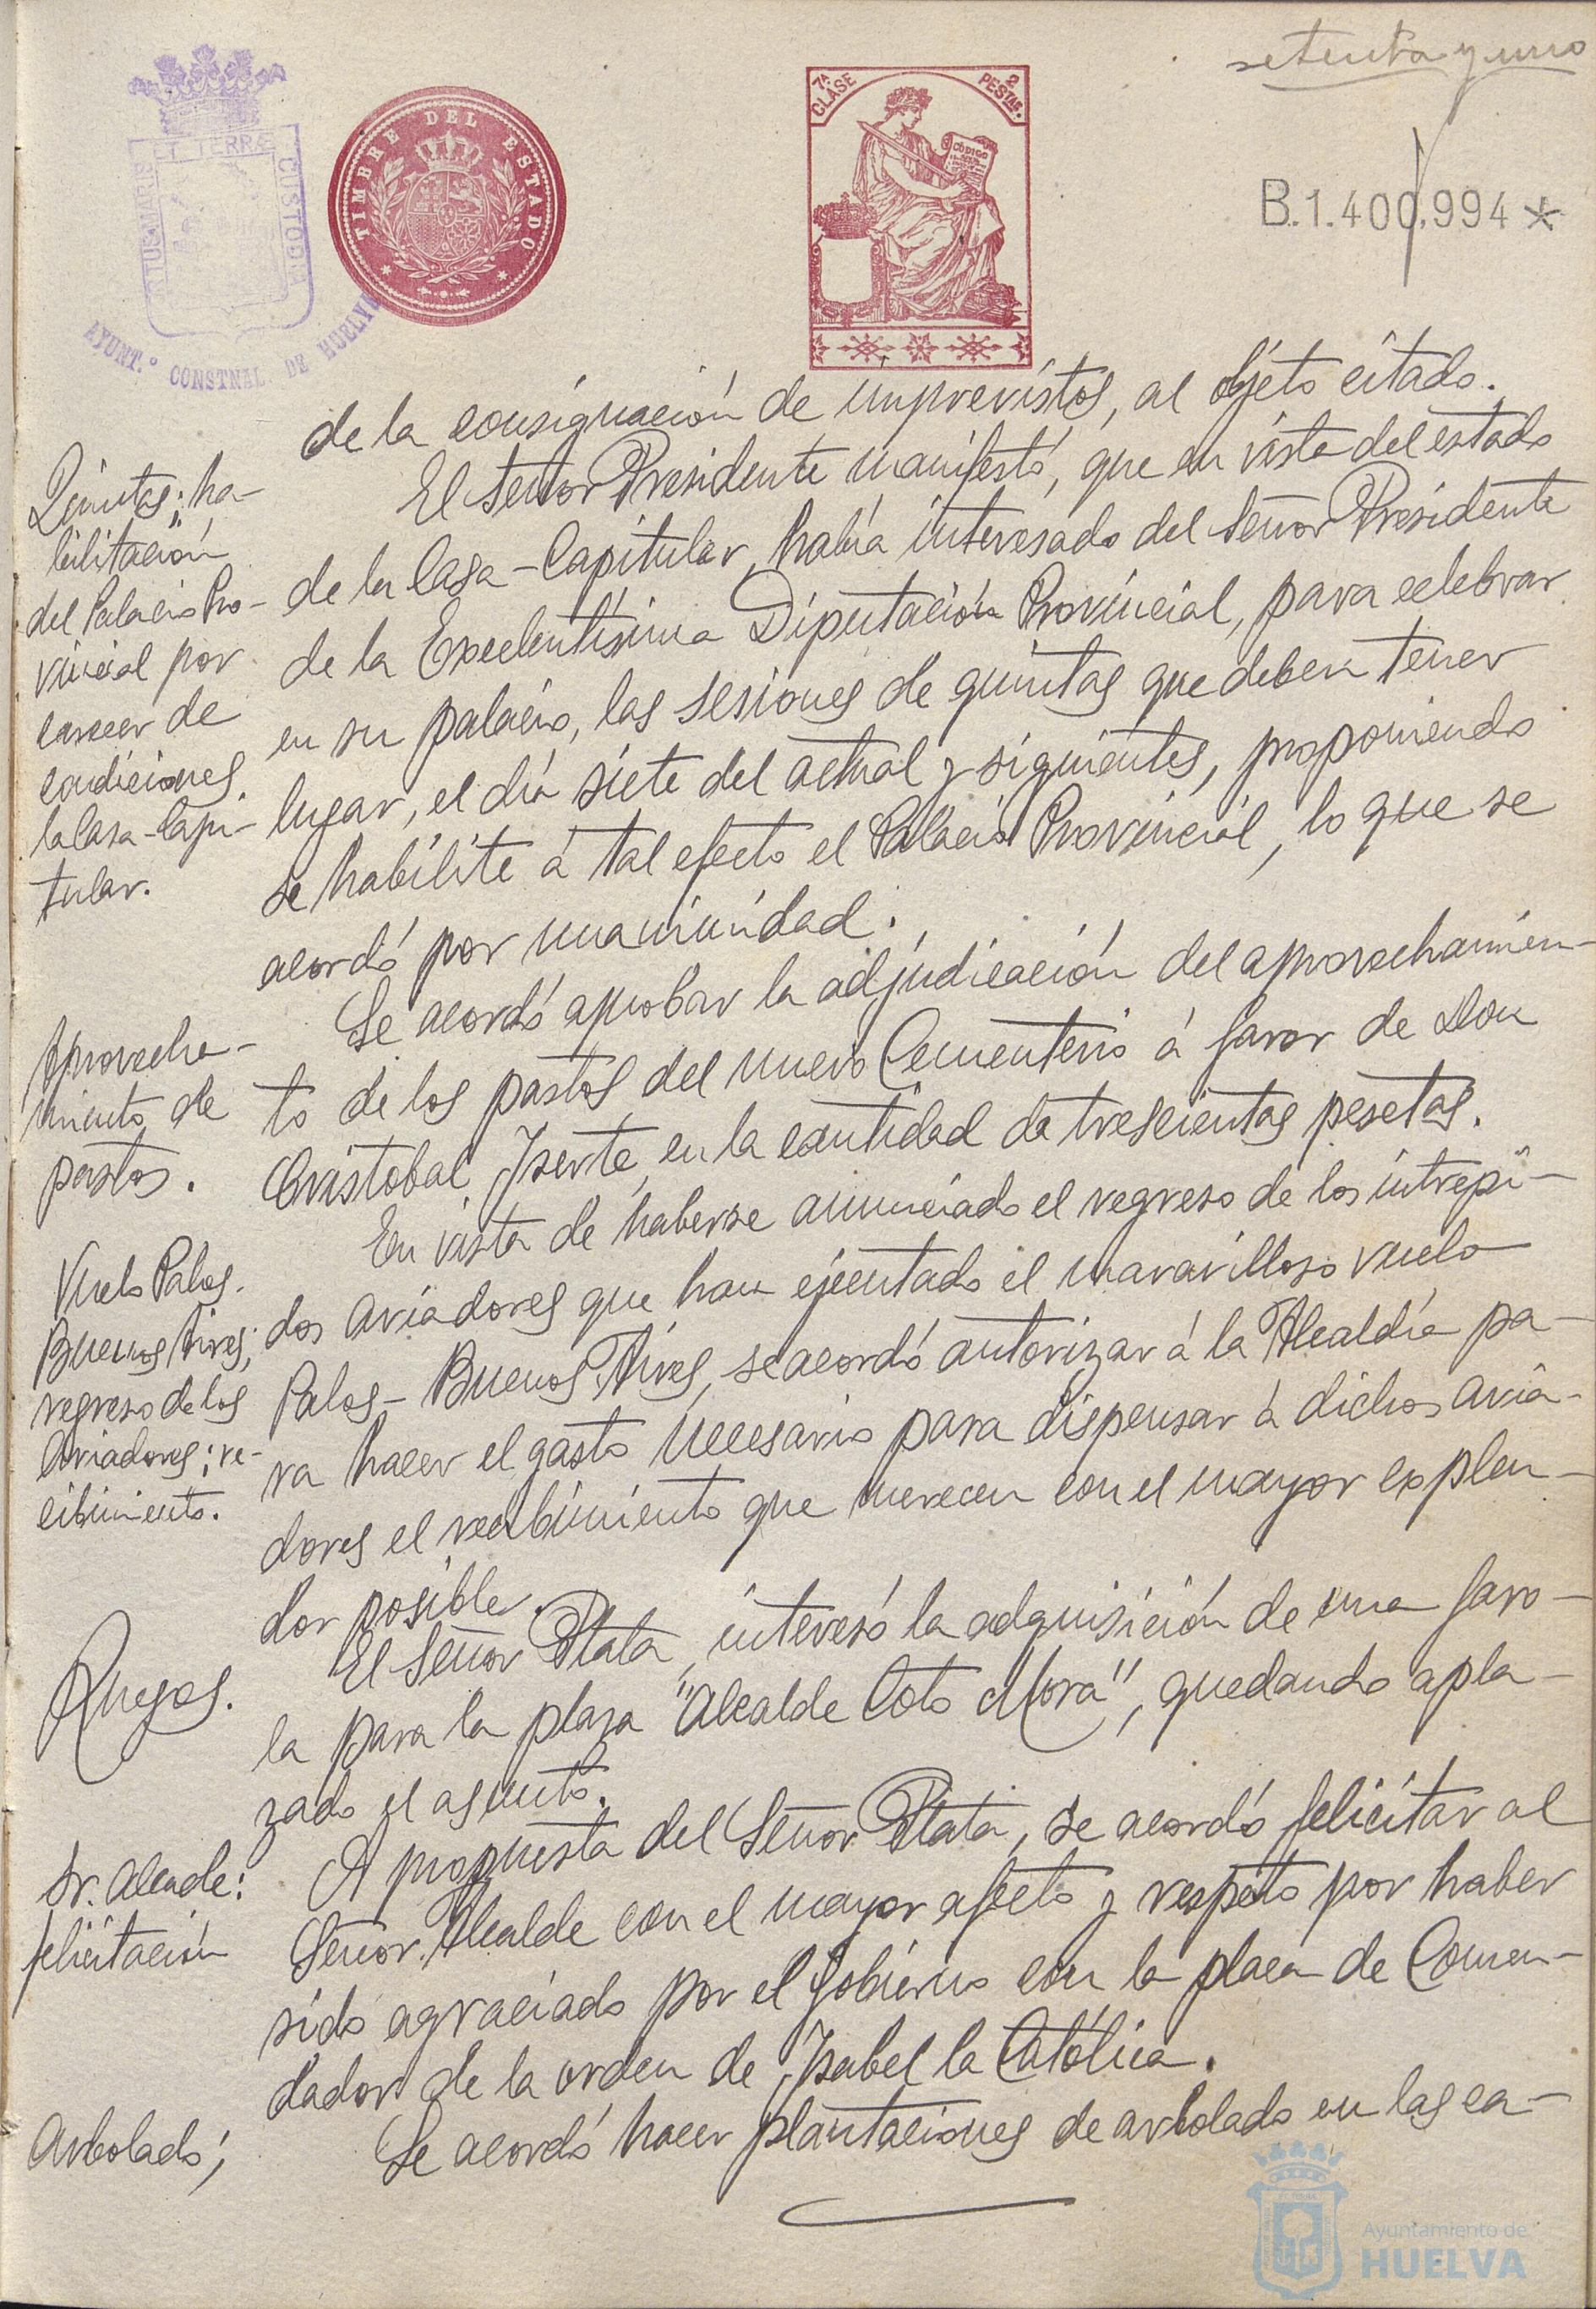 setenta y uno
7ª CLASE
2 PESTAS.
CÓDIGO
TIMBRE DEL ESTADO
ET TERRÆ
CUSTODIA
AYUNT.º CONSTNAL. DE HUELVA
B.1.400.994*
de la consignación de imprevistos, al objeto citado.
Quintas; ha-
bilitación
del Palacio Pro-
vincial por
carecer de
condiciones
la Casa-Capi-
tular.
El Señor Presidente manifestó, que en vista del estado
de la Casa-Capitular, había interesado del Señor Presidente
de la Excelentísima Diputación Provincial, para celebrar
en su palacio, las sesiones de quintas que deben tener
lugar, el día siete del actual y siguientes, proponiendo
se habilite á tal efecto el Palacio Provincial, lo que se
acordó por unanimidad.
Aprovecha-
miento de
pastos.
Se acordó aprobar la adjudicación del aprovechamien-
to de los pastos del nuevo Cementerio á favor de Don
Cristobal Iserte, en la cantidad de trescientas pesetas.
Vuelo Palos.
Buenos Aires;
regreso de los
Aviadores; re-
cibimiento.
En vista de haberse anunciado el regreso de los intrépi-
dos Aviadores que han ejecutado el maravilloso vuelo
Palos-Buenos Aires, se acordó autorizar á la Alcaldía pa-
ra hacer el gasto necesario para dispensar á dichos avia-
dores el recibimiento que merecen con el mayor explen-
dor posible.
Ruegos.
El Señor Plata, interesó la adquisición de una faro-
la para la plaza "Alcalde Coto Mora", quedando apla-
zado el asunto.
Sr. Alcalde:
felicitación
A propuesta del Señor Plata, se acordó felicitar al
Señor Alcalde con el mayor afecto y respeto por haber
sido agraciado por el Gobierno con la placa de Comen-
dador de la orden de Isabel la Católica.
Arbolado;
Se acordó hacer plantaciones de arbolado en las ca-
Ayuntamiento de
HUELVA